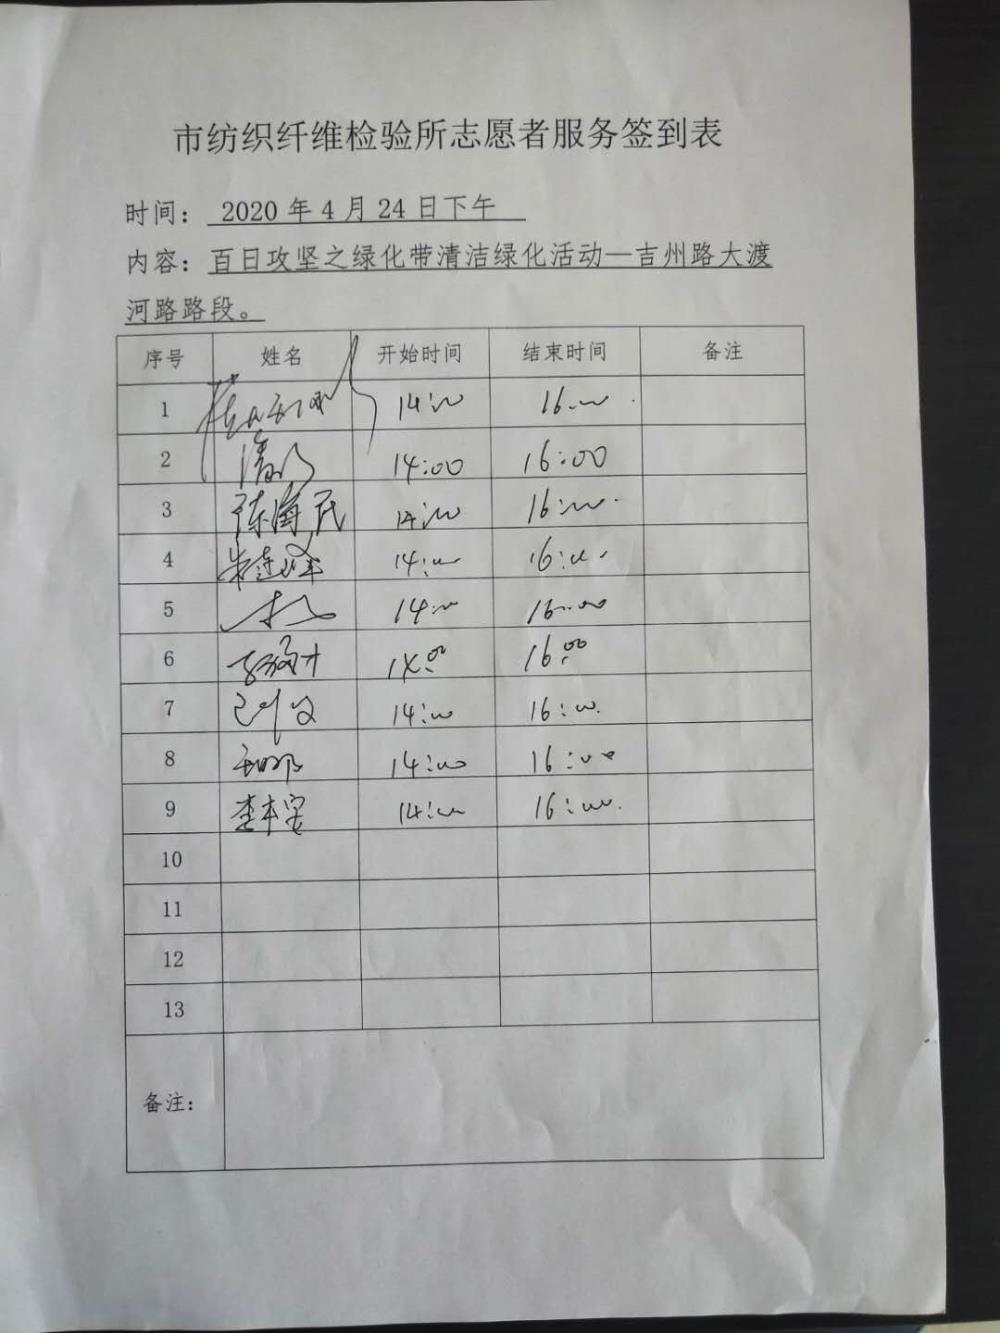 市纺织纤维检验所志愿者服务签到表
时间： 2020 年 4 月 24 日下午
内容：百日攻坚之绿化带清洁绿化活动—吉州路大渡
河路路段。
序号 姓名 开始时间 结束时间 备注
1 14:00 16:00
2 14:00 16:00
3 陈海民 14:00 16:00
4 朱连峰 14:00 16:00
5 14:00 16:00
6 14:00 16:00
7 14:00 16:00
8 14:00 16:00
9 李本宏 14:00 16:00
10
11
12
13
备注：